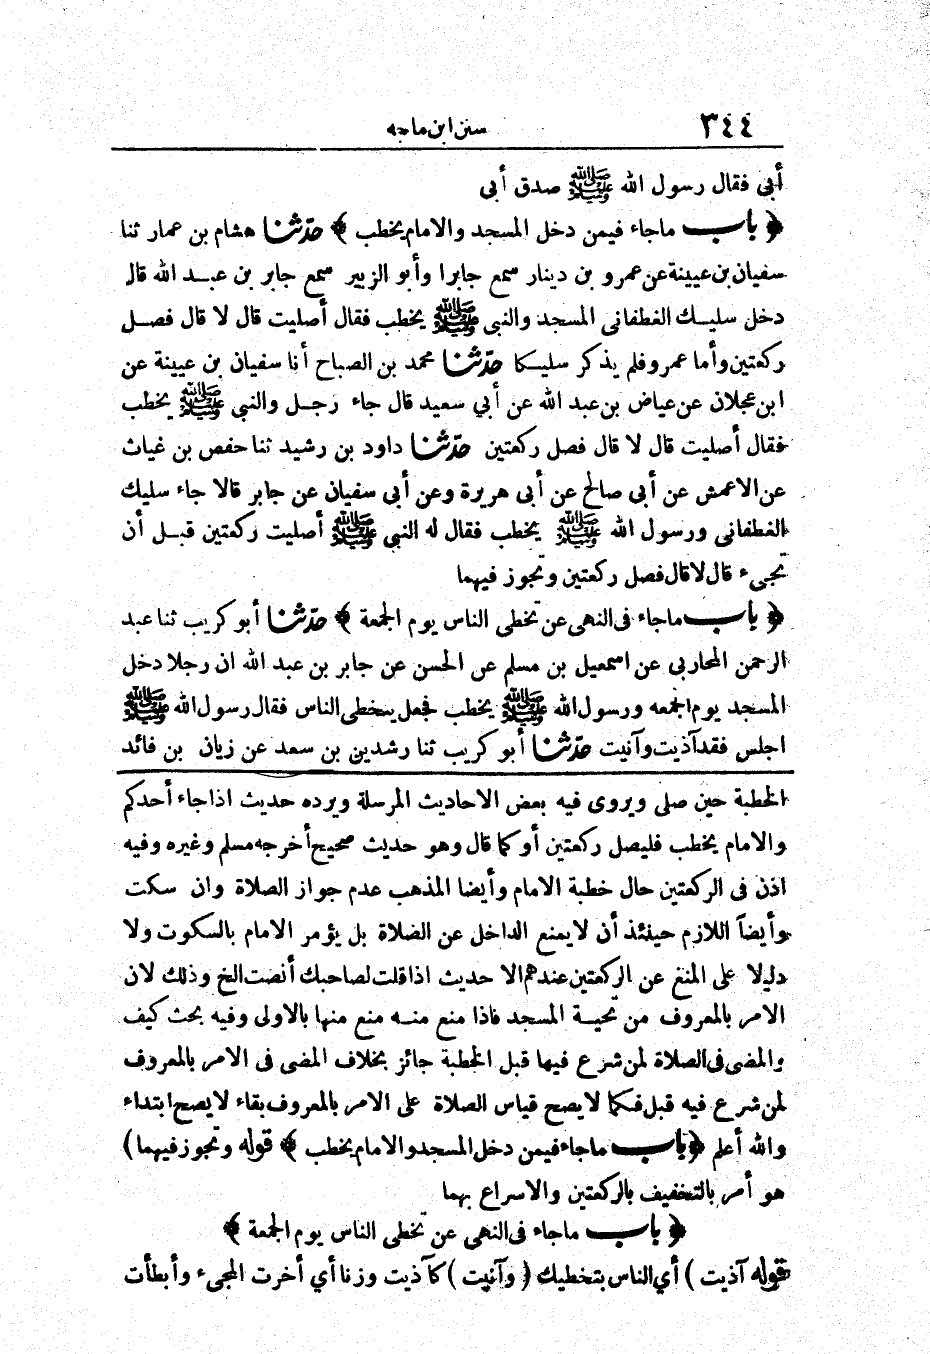 ٣٤٤
سنن ابن ماجه
أبي فقال رسول الله ﷺ صدق أبي
﴿ باب ماجاء فيمن دخل المسجد والامام يخطب ﴾ حدّثنا هشام بن عمار ثنا
سفيان بن عيينة عن عمرو بن دينار سمع جابرا وأبو الزبير سمع جابر بن عبد الله قال
دخل سليك الغطفاني المسجد والنبي ﷺ يخطب فقال أصليت قال لا قال فصل
ركعتين وأما عمرو فلم يذكر سليكا حدّثنا محمد بن الصباح أنا سفيان بن عيينة عن
ابن عجلان عن عياض بن عبد الله عن أبي سعيد قال جاء رجل والنبي ﷺ يخطب
فقال أصليت قال لا قال فصل ركعتين حدّثنا داود بن رشيد ثنا حفص بن غياث
عن الاعمش عن أبي صالح عن أبي هريرة وعن أبي سفيان عن جابر قالا جاء سليك
الغطفاني ورسول الله ﷺ يخطب فقال له النبي ﷺ أصليت ركعتين قبل أن
تجيء قال لا قال فصل ركعتين وتجوز فيهما
﴿ باب ماجاء في النهي عن تخطى الناس يوم الجمعة ﴾ حدّثنا أبو كريب ثنا عبد
الرحمن المحاربي عن اسمعيل بن مسلم عن الحسن عن جابر بن عبد الله ان رجلا دخل
المسجد يوم الجمعه ورسول الله ﷺ يخطب فجعل يتخطى الناس فقال رسول الله ﷺ
اجلس فقد آذيت وآنيت حدّثنا أبو كريب ثنا رشدين بن سعد عن زبان بن فائد
الخطبة حين صلى ويروى فيه بعض الاحاديث المرسلة ويرده حديث اذا جاء أحدكم
والامام يخطب فليصل ركعتين أو كما قال وهو حديث صحيح أخرجه مسلم وغيره وفيه
اذن في الركعتين حال خطبة الامام وأيضا المذهب عدم جواز الصلاة وان سكت
وأيضاً اللازم حينئذ أن لا يمنع الداخل عن الصلاة بل يؤمر الامام بالسكوت ولا
دليلا على المنع عن الركعتين عندهم الا حديث اذا قلت لصاحبك أنصت الخ وذلك لان
الامر بالمعروف من تحية المسجد فاذا منع منه منع منها بالاولى وفيه بحث كيف
والمضى في الصلاة لمن شرع فيها قبل الخطبة جائز بخلاف المضى في الامر بالمعروف
لمن شرع فيه قبل فكما لا يصح قياس الصلاة على الامر بالمعروف بقاء لا يصح ابتداء
والله أعلم ﴿ باب ماجاء فيمن دخل المسجد والامام يخطب ﴾ قوله وتجوز فيهما )
هو أمر بالتخفيف بالركعتين والاسراع بهما
﴿ باب ماجاء في النهي عن تخطى الناس يوم الجمعة ﴾
قوله آذيت ) أي الناس بتخطيك ( وآنيت ) كآذيت وزنا أي أخرت المجيء وأبطأت